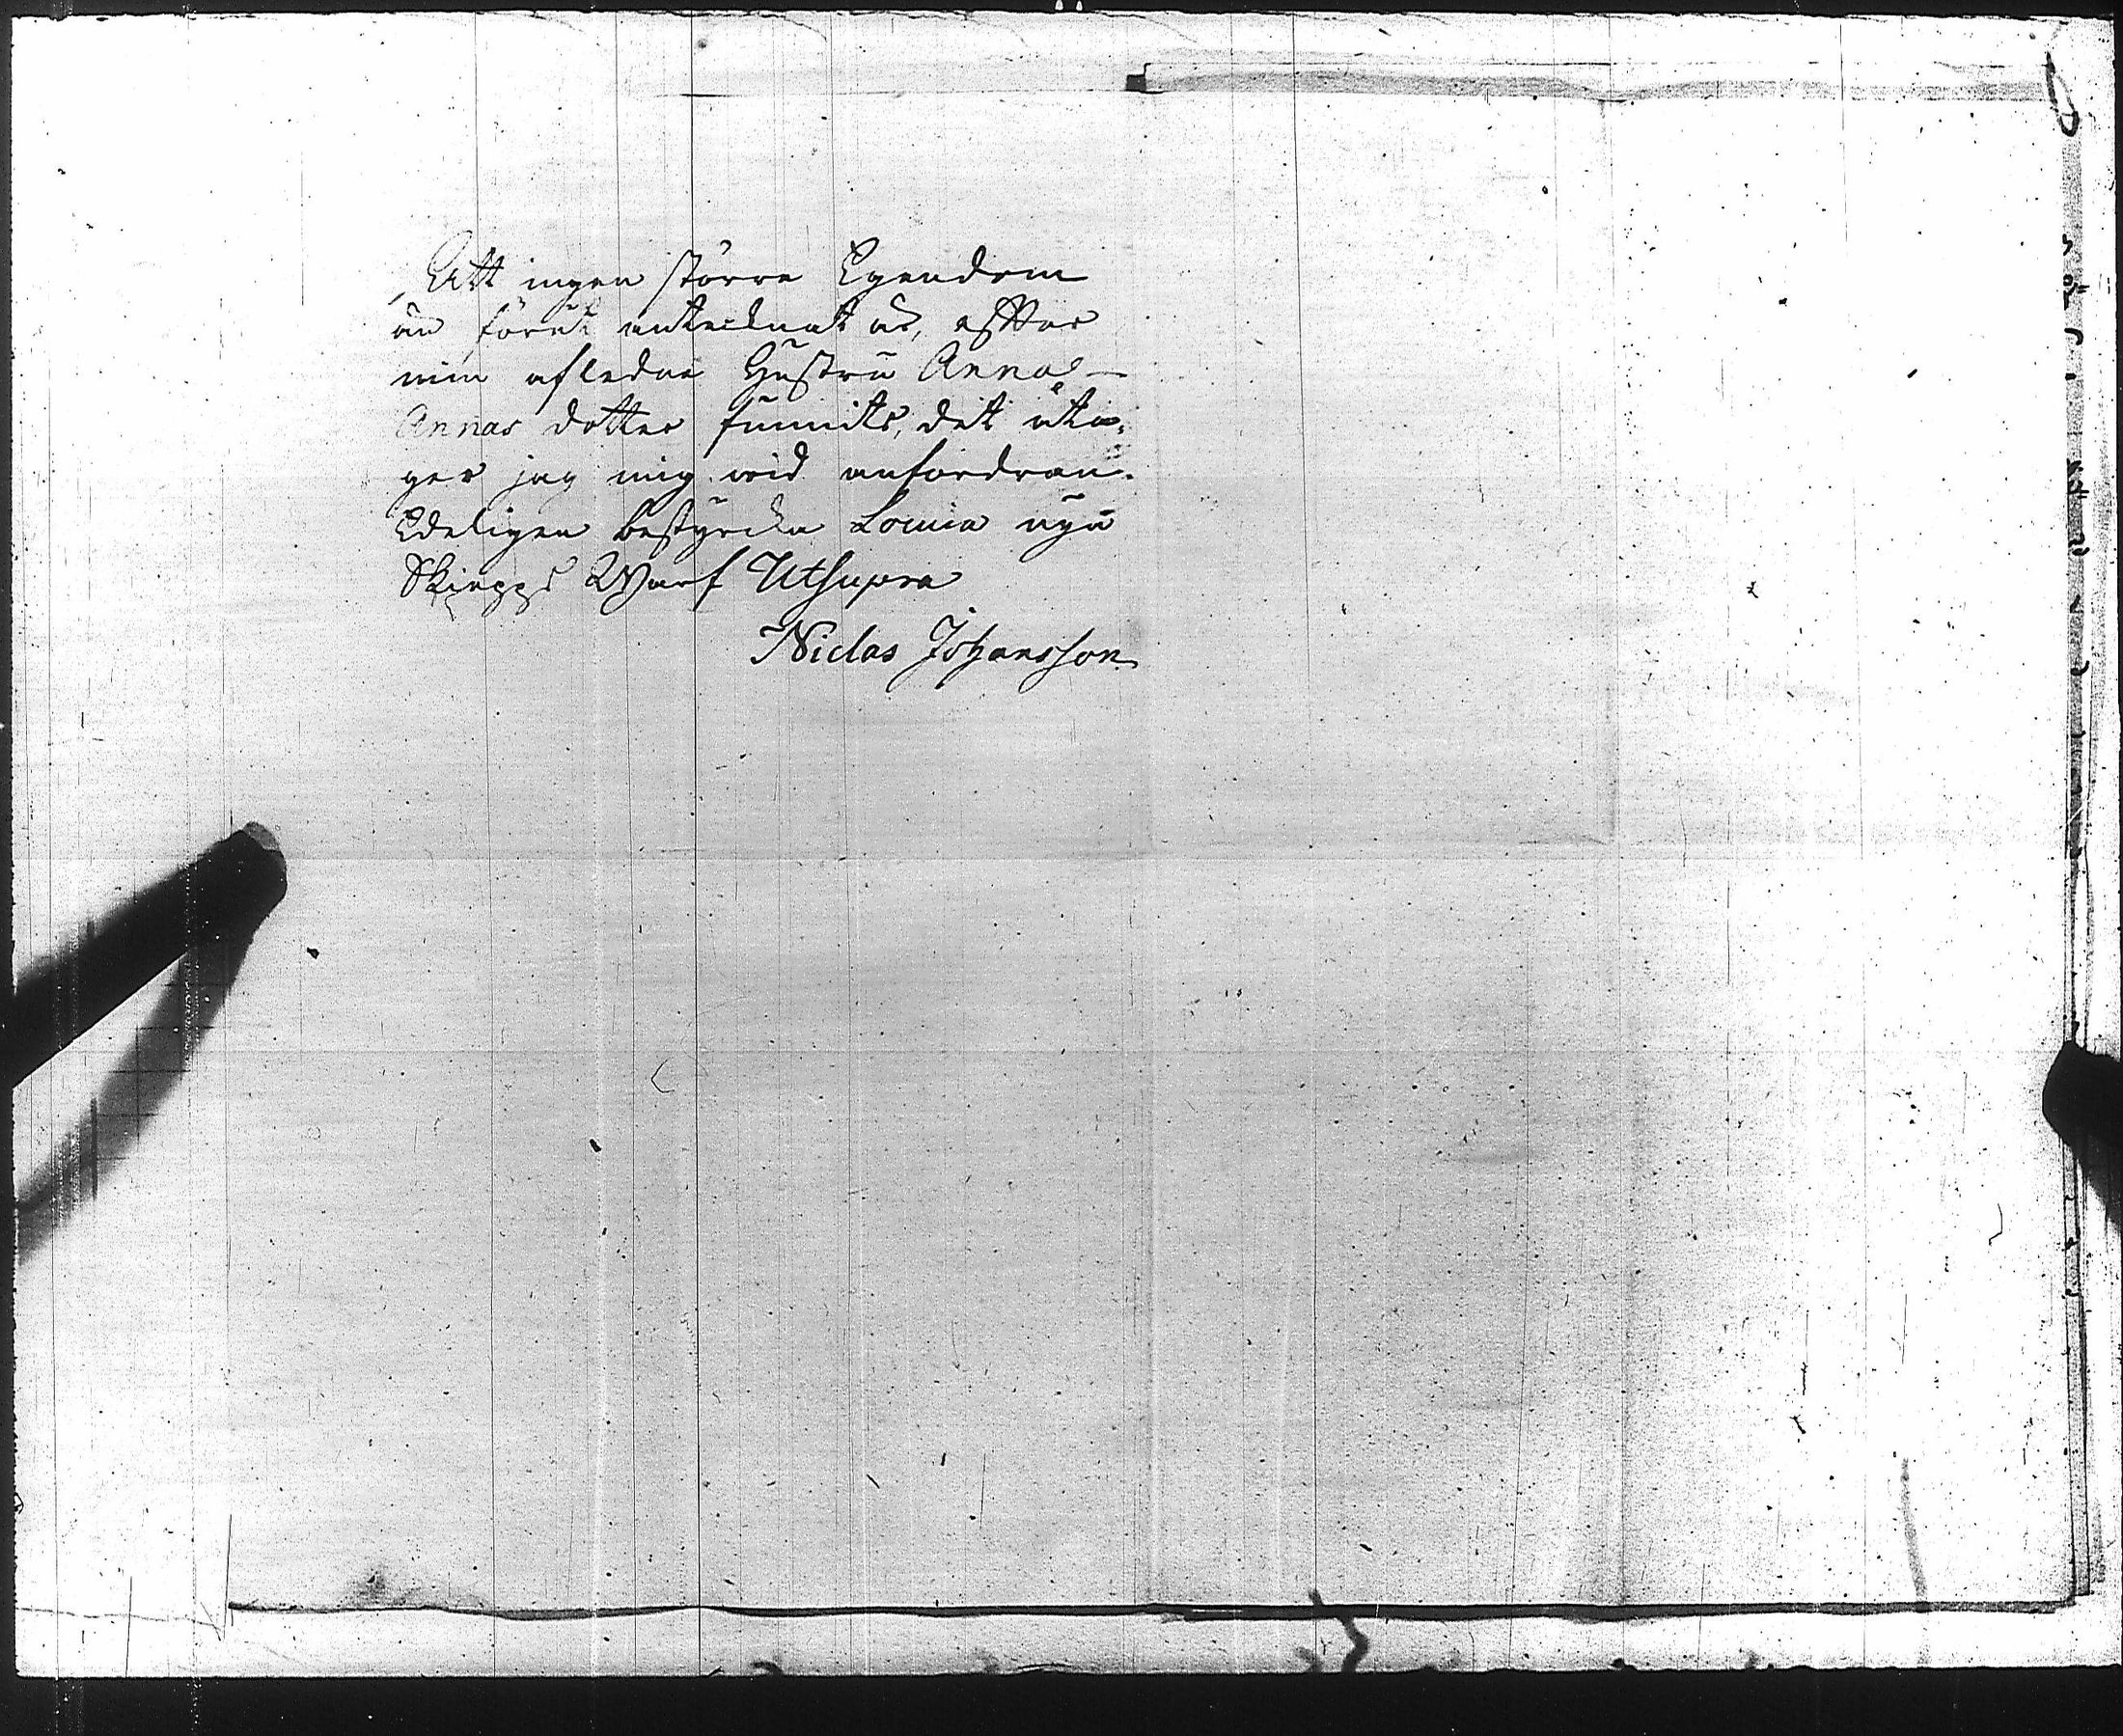 Att ingen större Egendom
än förut antecknat är, effter
min afledne Hustru Anna
Annas dotter funnits, det åta-
ger jag mig wid anfordran
Edeligen bestyrcka Lovisa nya
Skiepps Warf Utsupra
Niclas Johansson